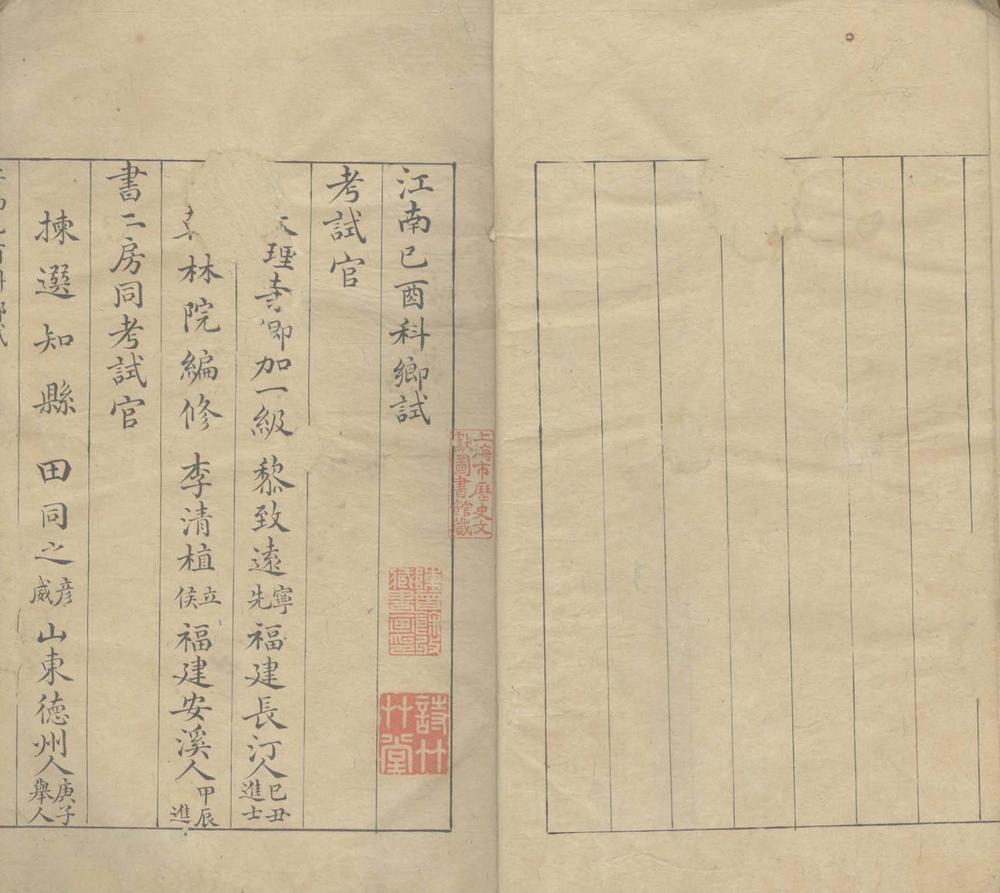 江南己酉科鄉試
考試官
理寺卿加一級 黎致遠 寧先 福建長汀人 己丑進士
林院編修 李清植 立侯 福建安溪人 甲辰進
書二房同考試官
揀選知縣 田同之 彦威 山東德州人 庚子舉人
上海市歷史文獻圖書館藏